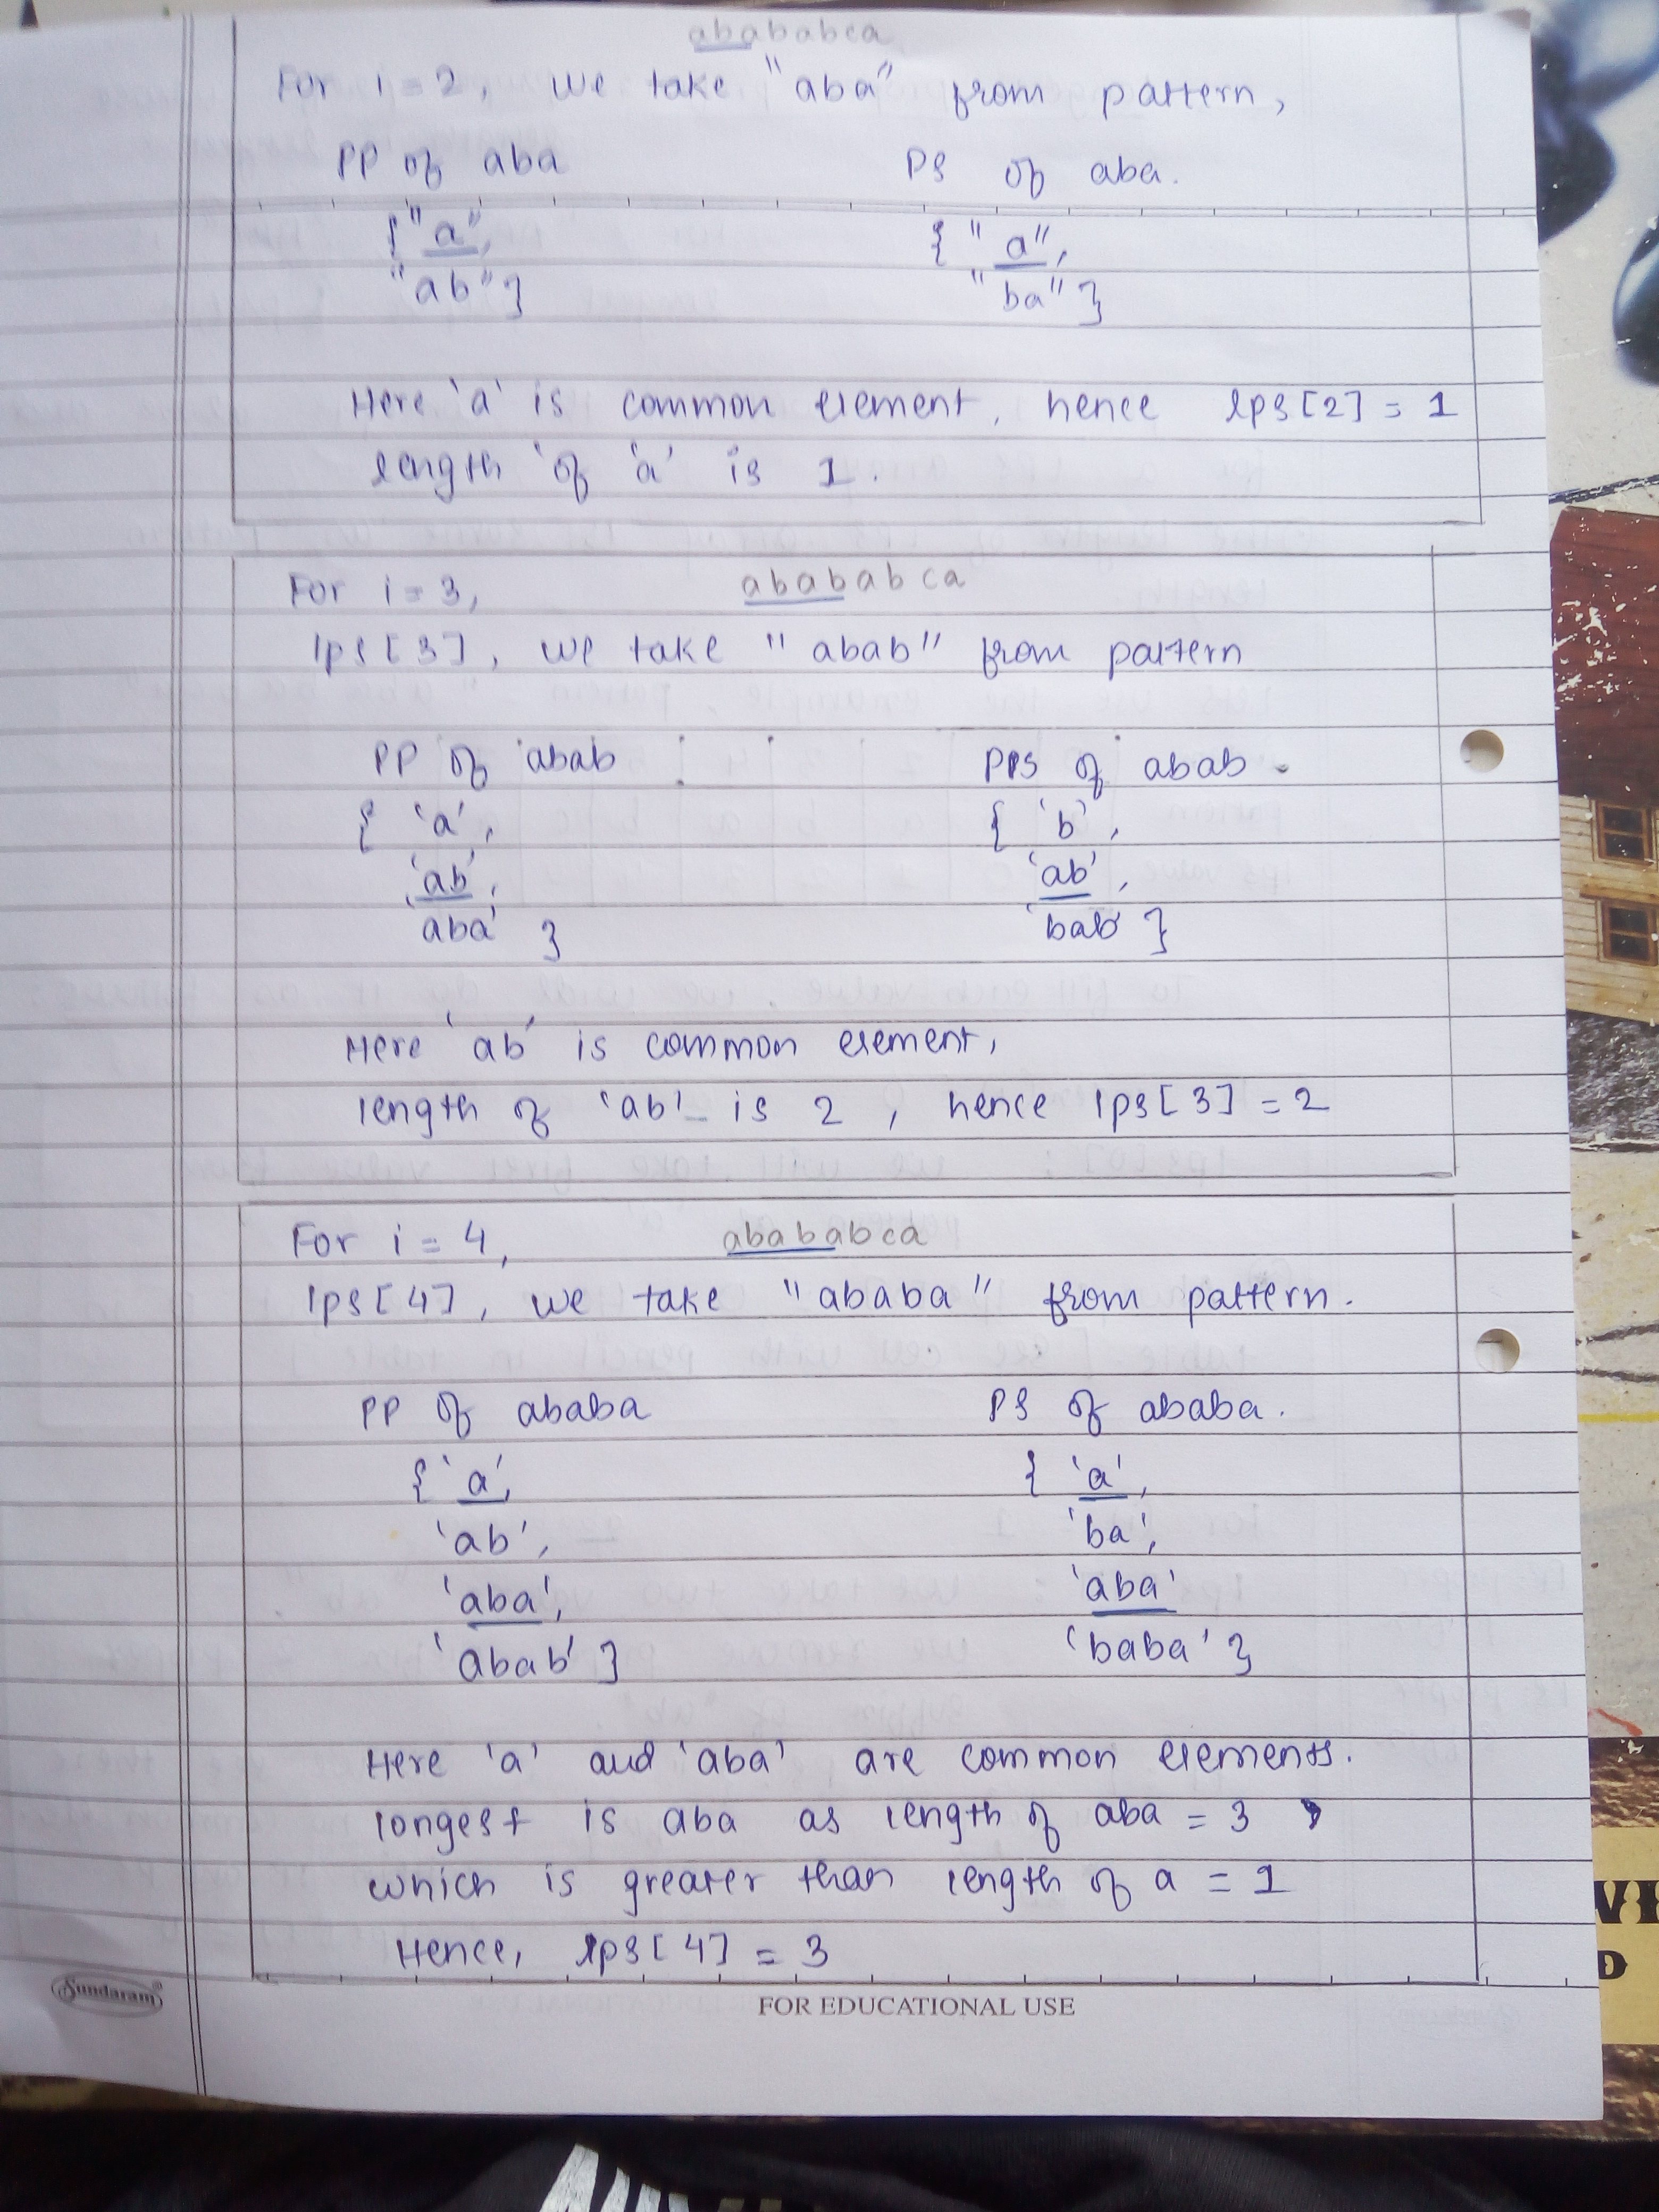 abababca
For i = 2, we take "aba" from pattern,
PP of aba PS of aba.
{ "a", { "a",
"ab" } "ba" }
Here 'a' is common element, hence lps[2] = 1
length of 'a' is 1.
For i = 3, abababca
lps[3], we take "abab" from pattern
PP of abab PPS of abab
{ 'a', { 'b',
'ab', 'ab',
'aba' } 'bab' }
Here 'ab' is common element,
length of 'ab' is 2, hence lps[3] = 2
For i = 4, abababca
lps[4], we take "ababa" from pattern.
PP of ababa PS of ababa.
{ 'a', { 'a',
'ab', 'ba',
'aba', 'aba'
'abab' } 'baba' }
Here 'a' and 'aba' are common elements.
longest is aba as length of aba = 3
which is greater than length of a = 1
Hence, lps[4] = 3
Sundaram
FOR EDUCATIONAL USE